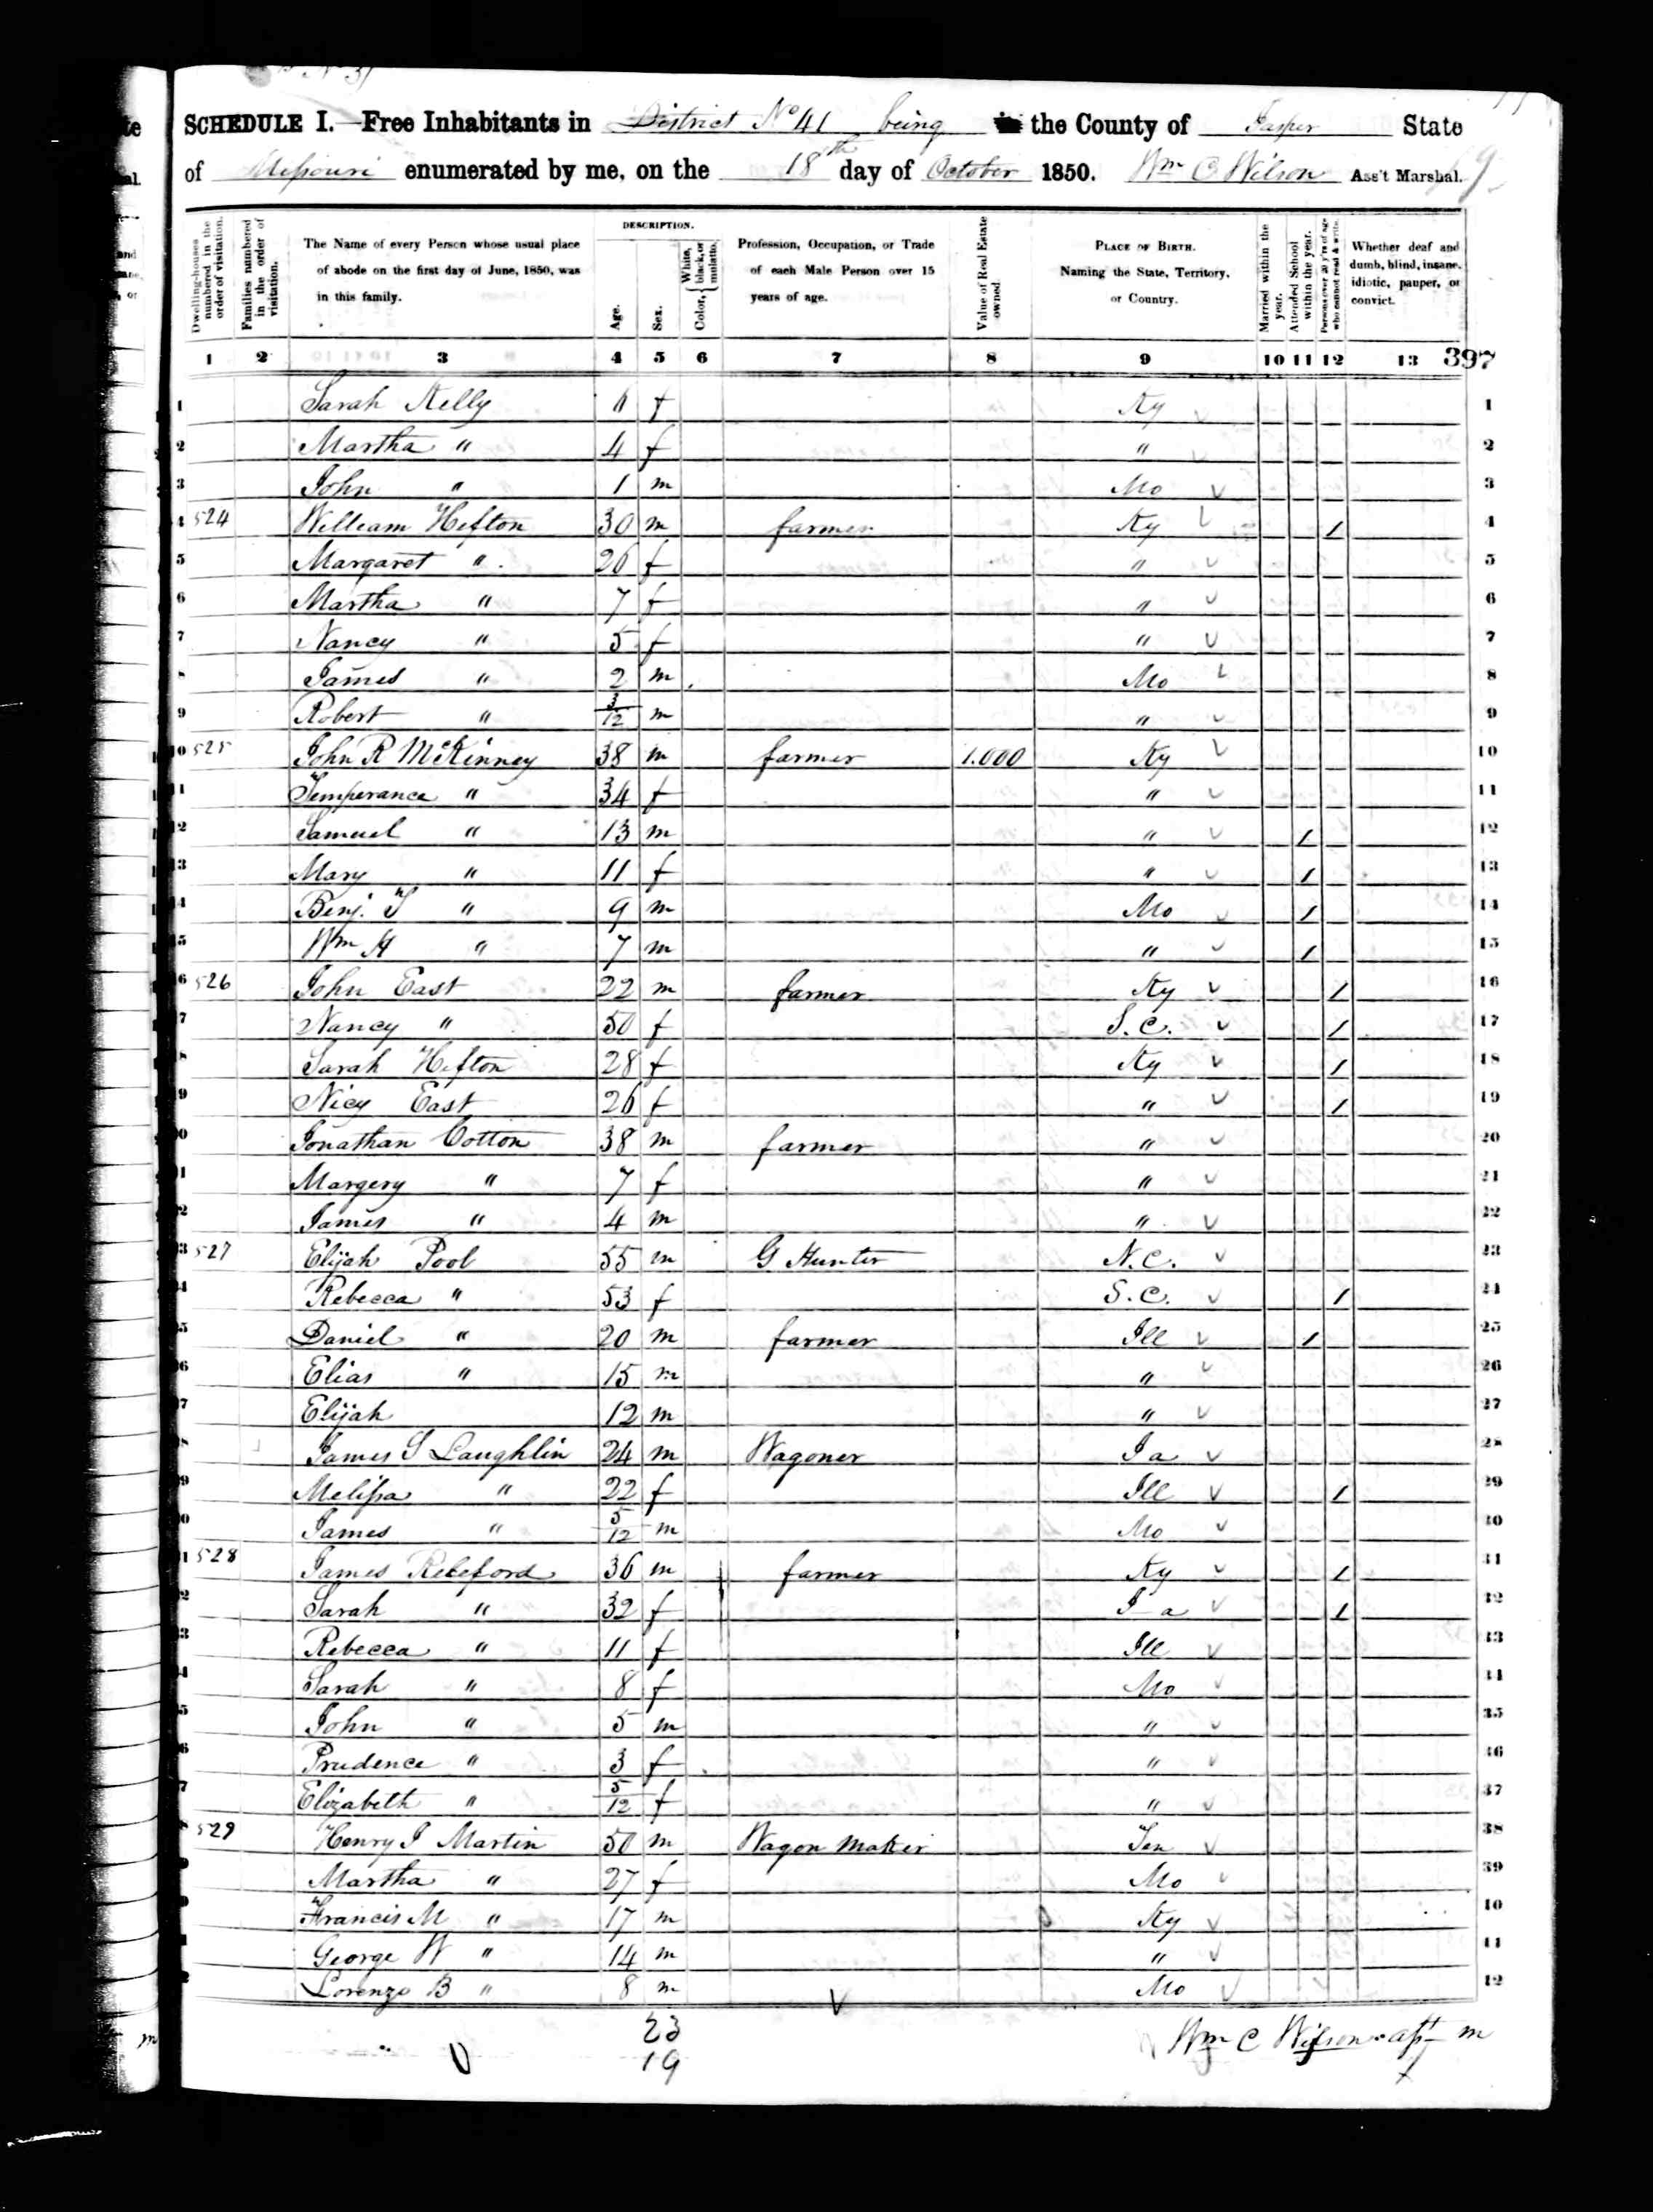 SCHEDULE I.—Free Inhabitants in District No 41 being in the County of Jasper State
of Missouri enumerated by me, on the 18th day of October 1850. Wm C Wilson Ass't Marshal.
Dwelling-houses numbered in the order of visitation.
Families numbered in the order of visitation.
The Name of every Person whose usual place of abode on the first day of June, 1850, was in this family.
DESCRIPTION.
Age.
Sex.
Color, { White, black, or mulatto.
Profession, Occupation, or Trade of each Male Person over 15 years of age.
Value of Real Estate owned.
PLACE OF BIRTH. Naming the State, Territory, or Country.
Married within the year.
Attended School within the year.
Persons over 20 y'rs of age who cannot read & write.
Whether deaf and dumb, blind, insane, idiotic, pauper, or convict.
1 2 3 4 5 6 7 8 9 10 11 12 13 397
1 Sarah Kelly f Ky 1
2 Martha " 4 f " 2
3 John " 1 m Mo 3
4 524 William Hefton 30 m farmer Ky 1 4
5 Margaret " 26 f " 5
6 Martha " 7 f " 6
7 Nancy " 5 f " 7
8 James " 2 m Mo 8
9 Robert " 3/12 m " 9
10 525 John R McKinney 38 m farmer 1.000 Ky 10
11 Temperance " 34 f " 11
12 Samuel " 13 m " 1 12
13 Mary " 11 f " 1 13
14 Benj. T " 9 m Mo 1 14
15 Wm H " 7 m " 1 15
16 526 John East 22 m farmer Ky 1 16
17 Nancy " 50 f S.C. 1 17
18 Sarah Hefton 28 f Ky 1 18
19 Nicy East 26 f " 1 19
20 Jonathan Cotton 38 m farmer " 20
21 Margery " 7 f " 21
22 James " 4 m " 22
23 527 Elijah Pool 55 m G Hunter N.C. 23
24 Rebecca " 53 f S.C. 1 24
25 Daniel " 20 m farmer Ill 1 25
26 Elias " 15 m " 26
27 Elijah 12 m " 27
28 James S Laughlin 24 m Wagoner Ia 28
29 Melissa " 22 f Ill 1 29
30 James " 5/12 m Mo 30
31 528 James 36 m farmer Ky 1 31
32 Sarah " 32 f Ia 1 32
33 Rebecca " 11 f Ill 33
34 Sarah " 8 f Mo 34
35 John " 5 m " 35
36 Prudence " 3 f " 36
37 Elizabeth " 5/12 f " 37
38 529 Henry J Martin 50 m Wagon Maker Ten 38
39 Martha " 27 f Mo 39
40 Francis M " 17 m Ky 40
41 George W " 14 m " 41
42 Lorenzo B " 8 m Mo 42
23
19
Wm C Wilson asst m